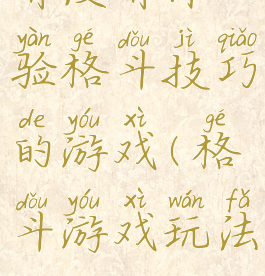 yàn gé dǒu jì qiǎo
验格斗技巧
de yóu xì gé
的游戏(格
dǒu yóu xì wán fǎ
斗游戏玩法